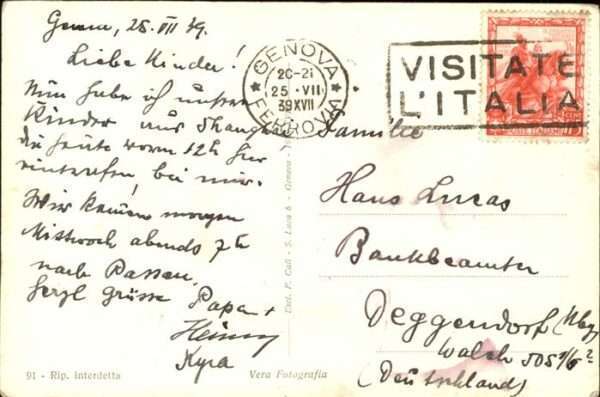 Genua, 25. VII 39.
Liebe Kinder!
Nun habe ich unsere
Kinder aus Shanghai
die heute vorm 12h hier
eintrafen, bei mir.
Wir kommen morgen
Mittwoch abends 7h
nach Passau.
Herzl Grüsse
Papa +
Heinz
Kyra
91 - Rip. interdetta
Vera Fotografia
Excl. F. Cali - S. Luca 6 - Genova
GENOVA
20-21
25 · VII
39 XVII
FERROVIA
VISITATE
L'ITALIA
POSTE ITALIANE
Familie
Hans Lucas
Bankbeamter
Deggendorf
(Deutschland)